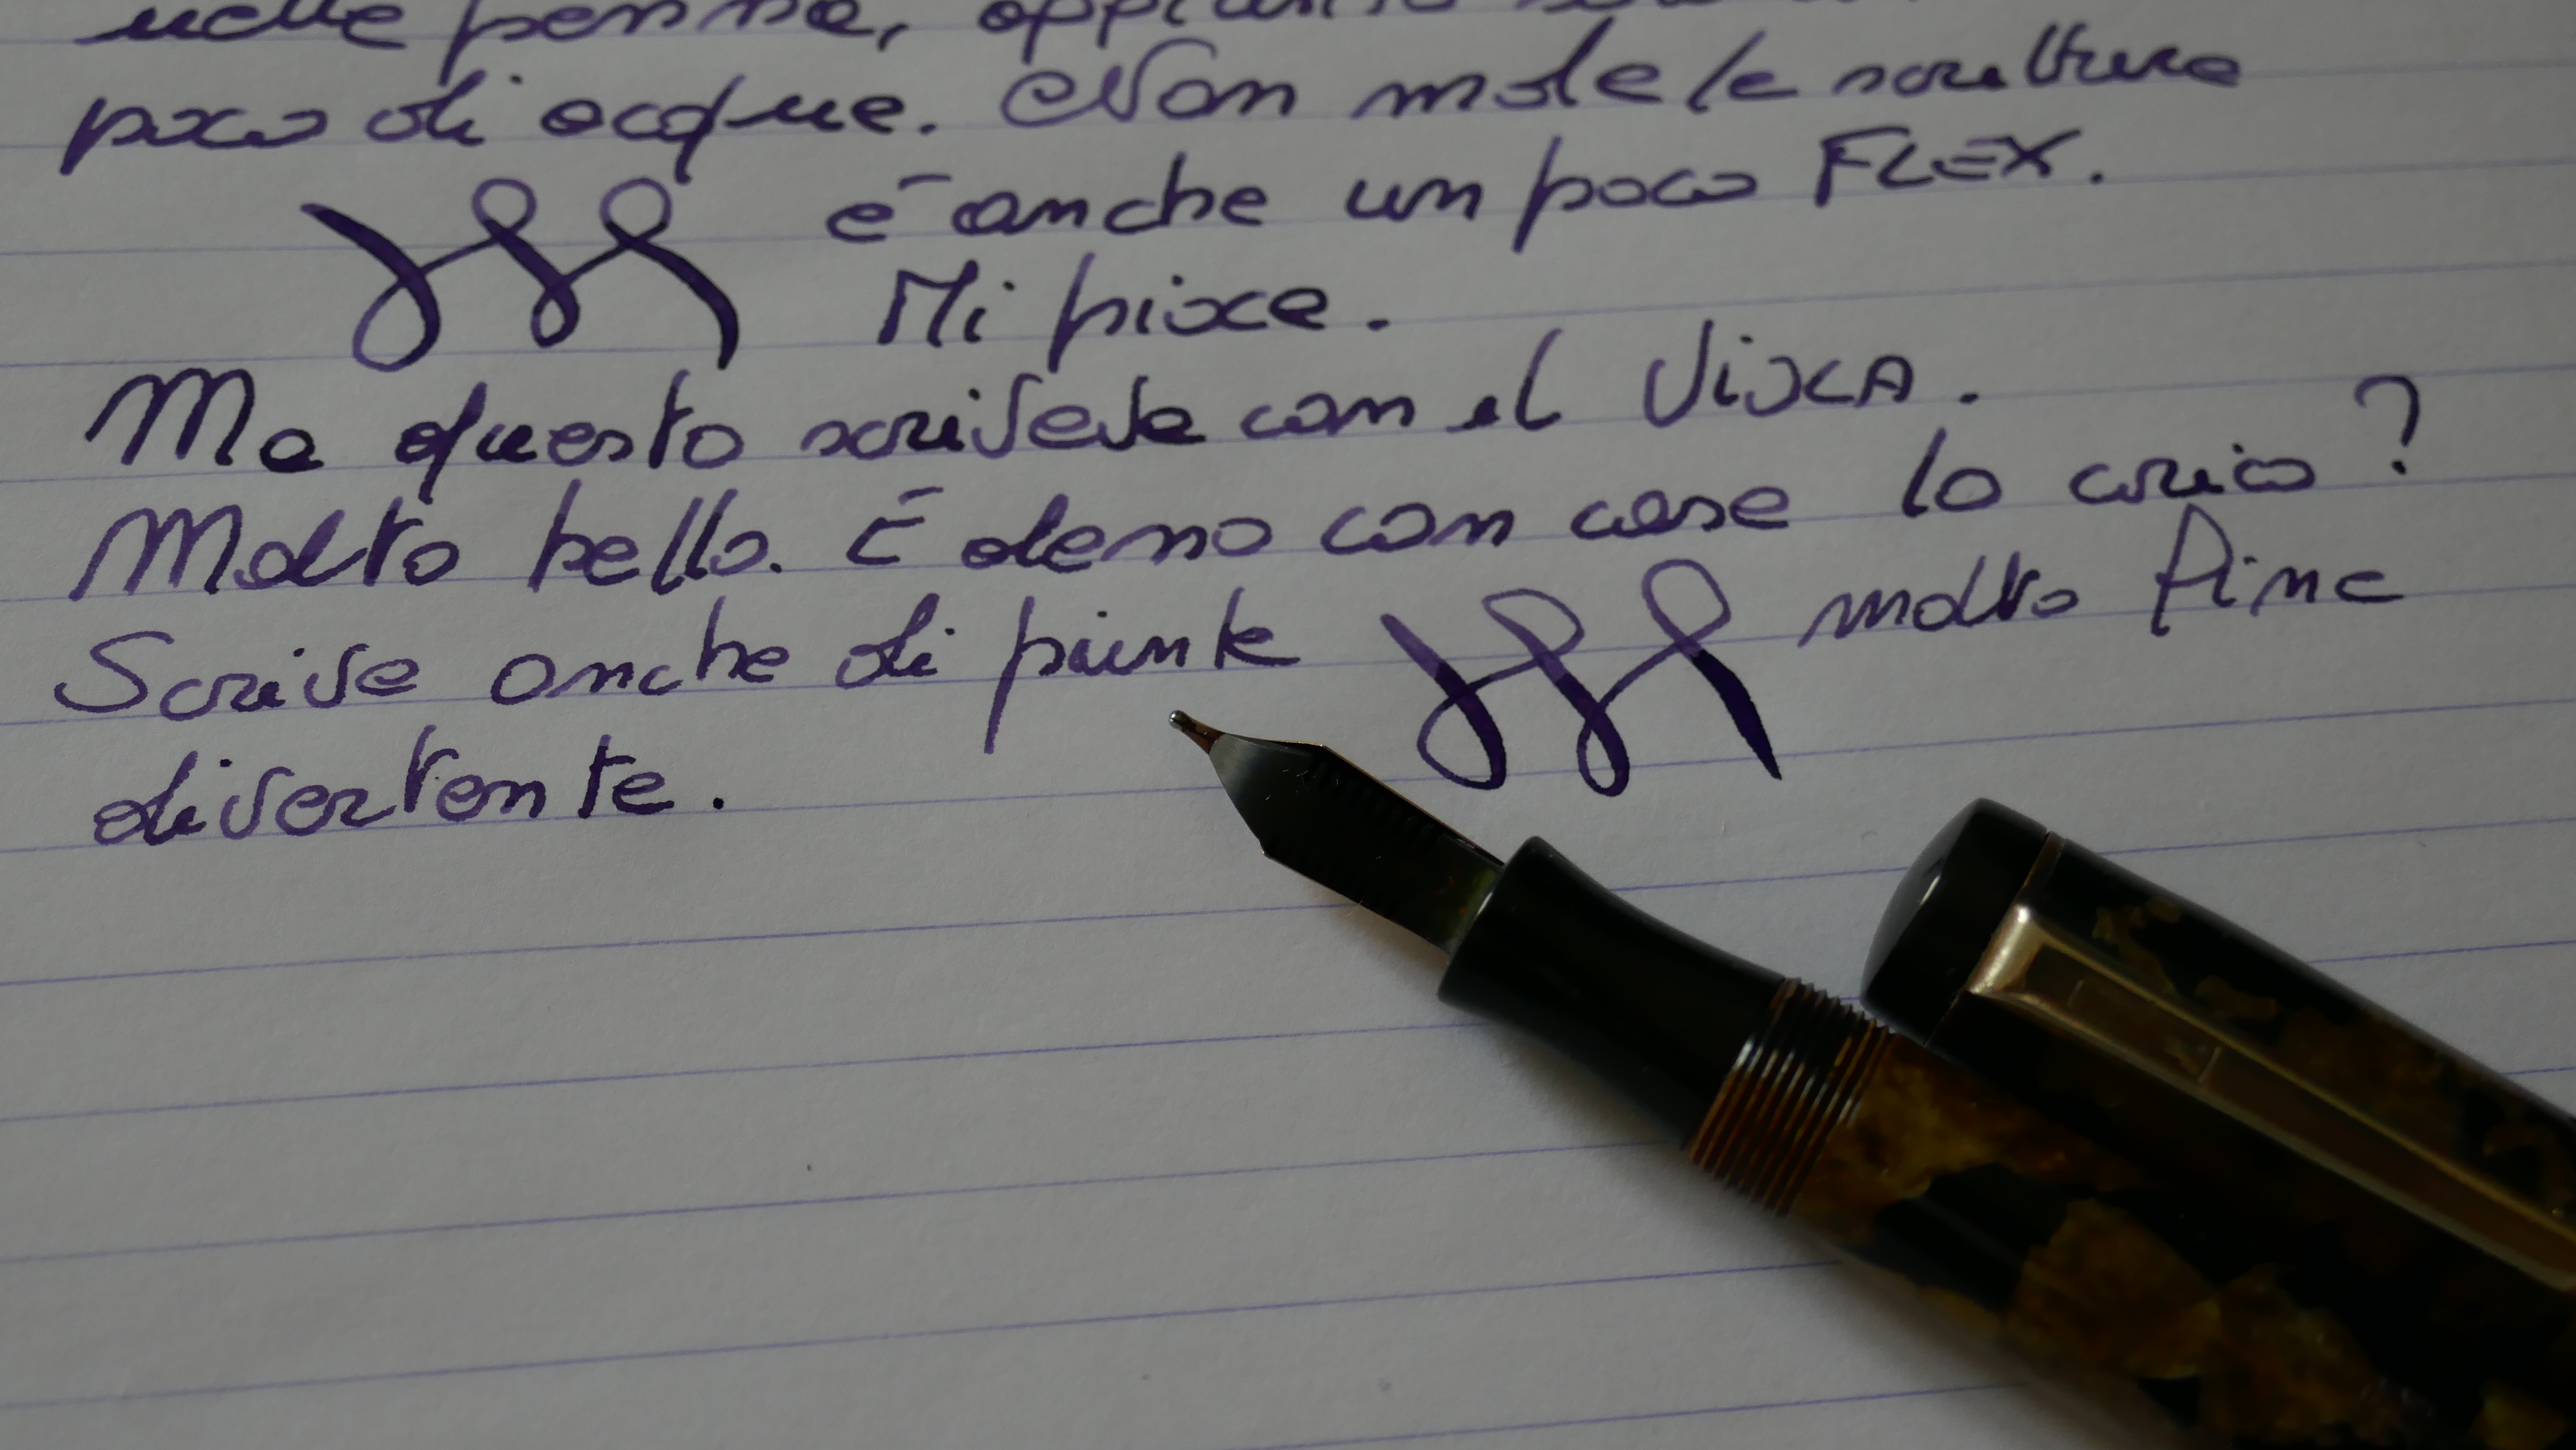 nella penna,
poco di acqua. Non male la scrittura
é anche un poco FLEX.
Mi piace.
Ma questo scriveva con il VISCA.
Molto bello. É adesso con cosa lo carico?
Scrive anche di punta molto fine
divertente.